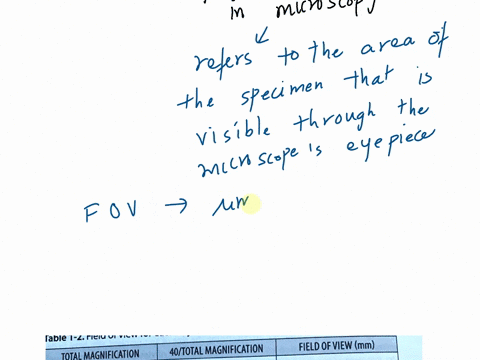 in microscopy
refers to the area of
the specimen that is
visible through the
microscope's eyepiece
FOV → μm
Table 1-2. Field of View for
TOTAL MAGNIFICATION 40/TOTAL MAGNIFICATION FIELD OF VIEW (mm)